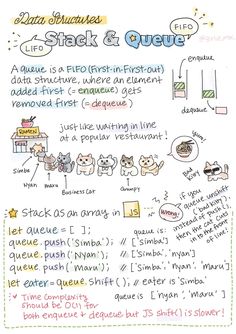 Data Structures
Stack & Queue
LIFO
FIFO
A queue is a FIFO (First-in-First-out)
data structure, where an element
added first (= enqueue) gets
removed first (= dequeue)
enqueue
dequeue
just like waiting in line
at a popular restaurant!
RAMEN
Yum!
Simba
Nyan
maru
Business Cat
Grumpy
★ Stack as an array in JS
Wrong!
if you
queue.unshift
('bad kitty')
instead of push(),
then the cat cuts
in to the front
of line!
let queue = [ ];
queue is:
queue.push('Simba'); // ['simba']
queue.push('Nyan'); // ['simba', 'nyan']
queue.push('maru'); // ['simba', 'nyan', 'maru']
let eater = queue.shift(); // eater is 'Simba'
queue is ['nyan', 'maru']
♥ Time Complexity
should be O(1) for
both enqueue + dequeue but JS shift() is slower!